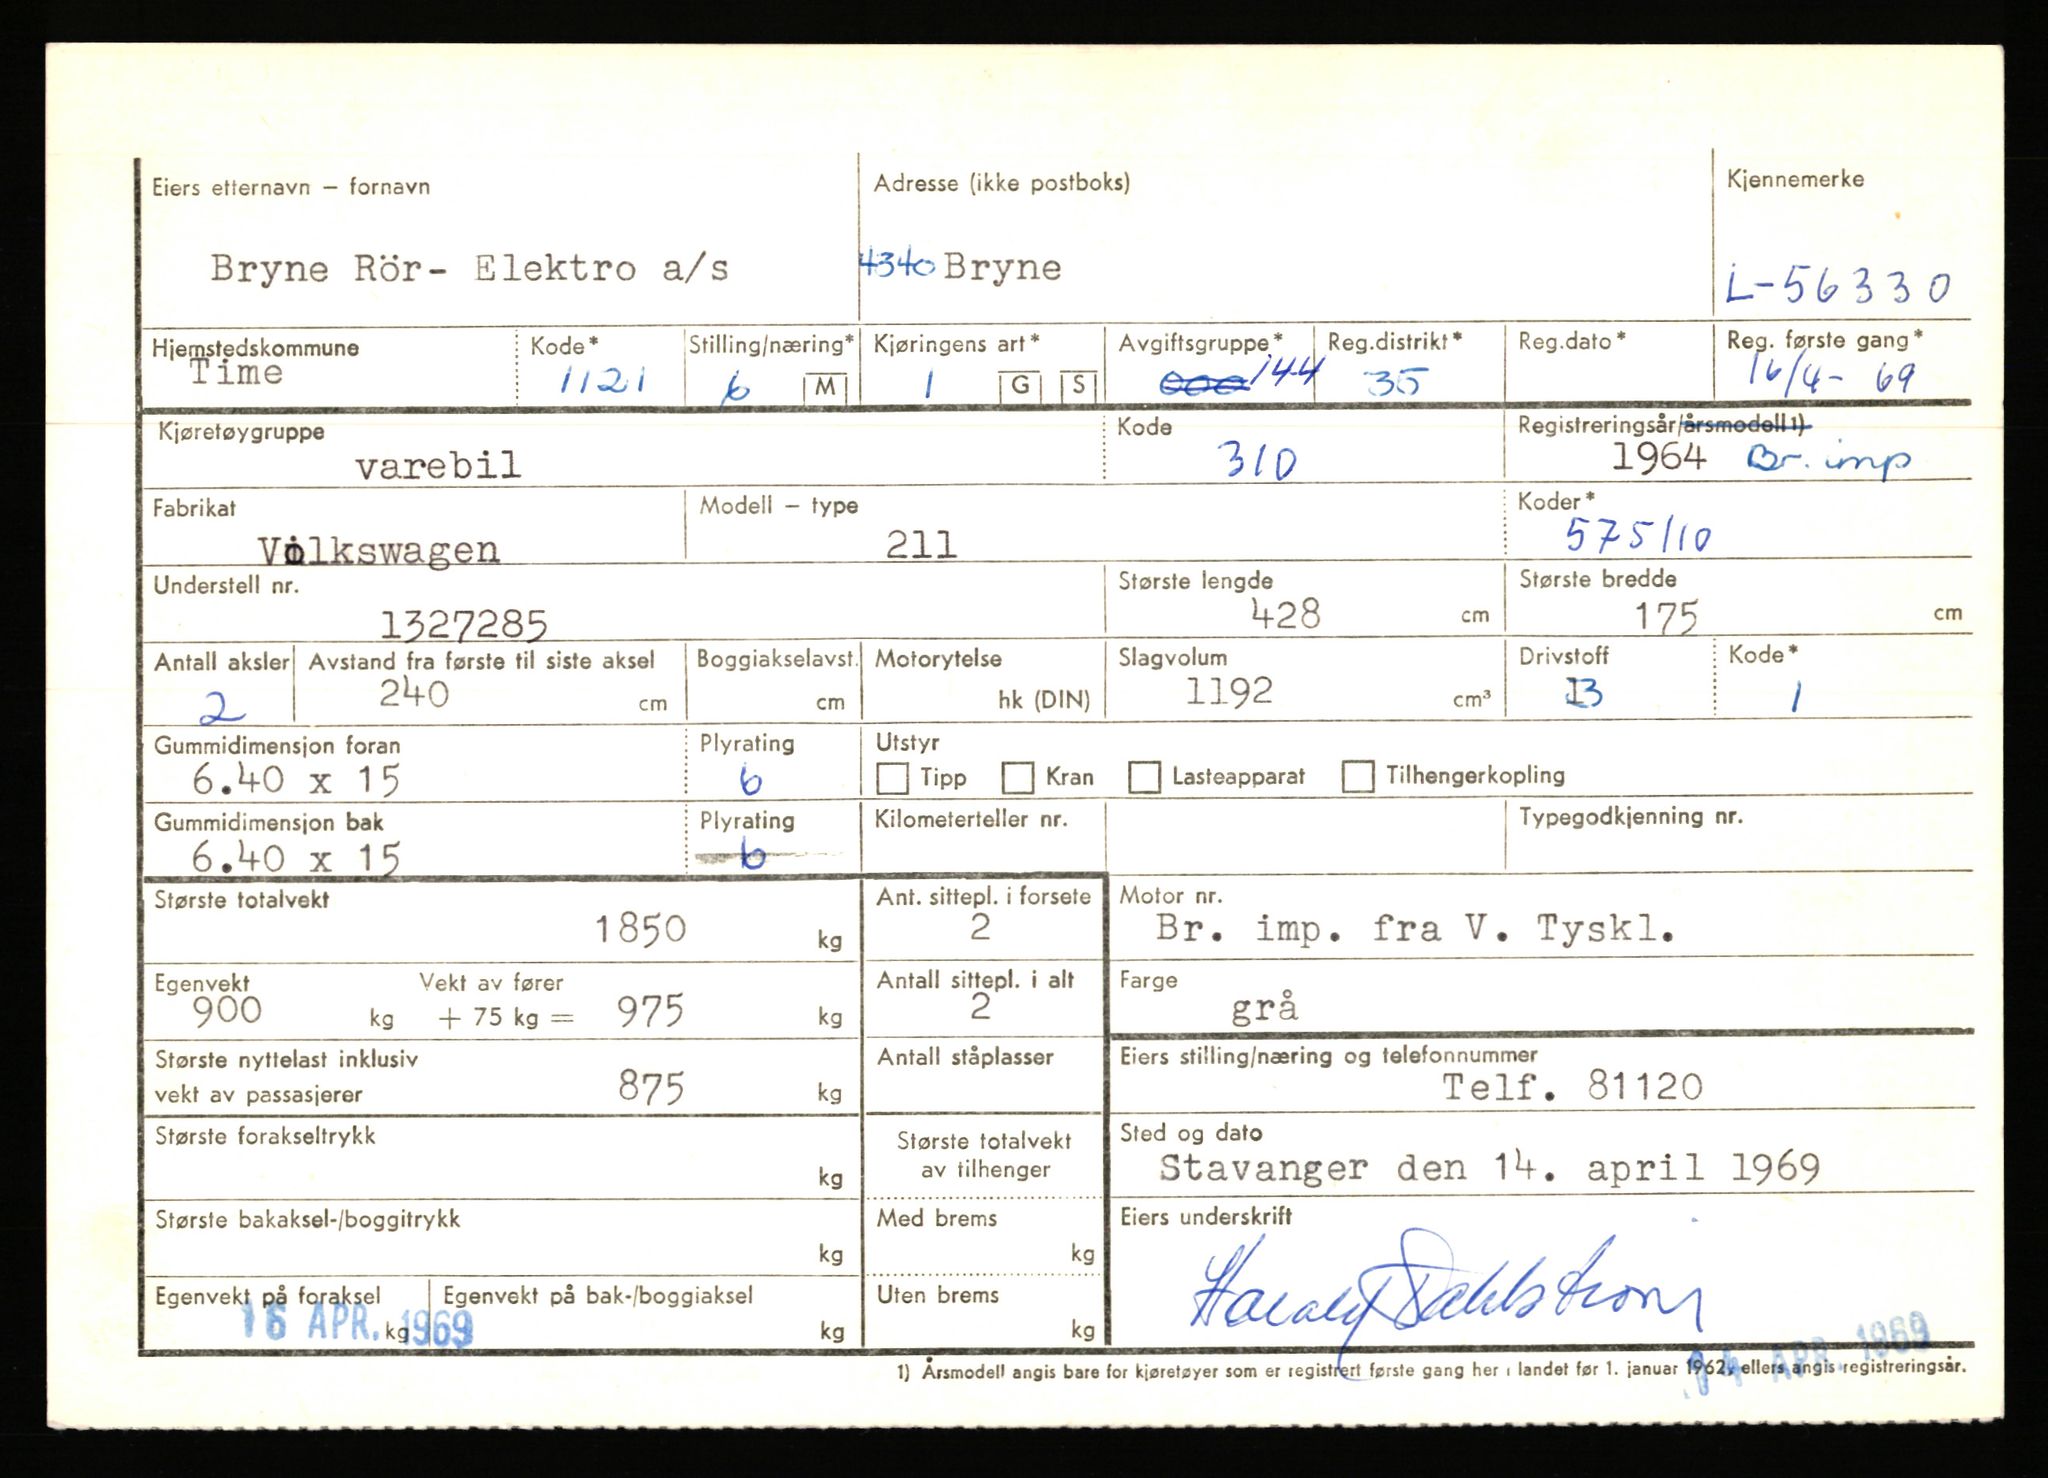 Eiers etternavn – fornavn Adresse (ikke postboks) Kjennemerke
Bryne Rör- Elektro a/s 4340 Bryne L-56330
Hjemstedskommune Kode* Stilling/næring* Kjøringens art* Avgiftsgruppe* Reg.distrikt* Reg.dato* Reg. første gang*
Time 1121 6 M 1 G S 000 144 35 16/4- 69
Kjøretøygruppe Kode Registreringsår/årsmodell 1)
varebil 310 1964 Br. imp
Fabrikat Modell – type Koder*
Volkswagen 211 575/10
Understell nr. Største lengde Største bredde
1327285 428 cm 175 cm
Antall aksler Avstand fra første til siste aksel Boggiakselavst. Motorytelse Slagvolum Drivstoff Kode*
2 240 cm cm hk (DIN) 1192 cm³ B 1
Gummidimensjon foran Plyrating Utstyr
6.40 x 15 6 Tipp Kran Lasteapparat Tilhengerkopling
Gummidimensjon bak Plyrating Kilometerteller nr. Typegodkjenning nr.
6.40 x 15 6
Største totalvekt Ant. sittepl. i forsete Motor nr.
1850 kg 2 Br. imp. fra V. Tyskl.
Egenvekt Vekt av fører Antall sittepl. i alt Farge
900 kg + 75 kg = 975 kg 2 grå
Største nyttelast inklusiv Antall ståplasser Eiers stilling/næring og telefonnummer
vekt av passasjerer 875 kg Telf. 81120
Største forakseltrykk Største totalvekt Sted og dato
kg av tilhenger Stavanger den 14. april 1969
Største bakaksel-/boggitrykk Med brems Eiers underskrift
kg kg Harald Dahlstrøm
Egenvekt på foraksel Egenvekt på bak-/boggiaksel Uten brems
16 APR. 1969 kg kg kg
14 APR. 1969
1) Årsmodell angis bare for kjøretøyer som er registrert første gang her i landet før 1. januar 1962, ellers angis registreringsår.